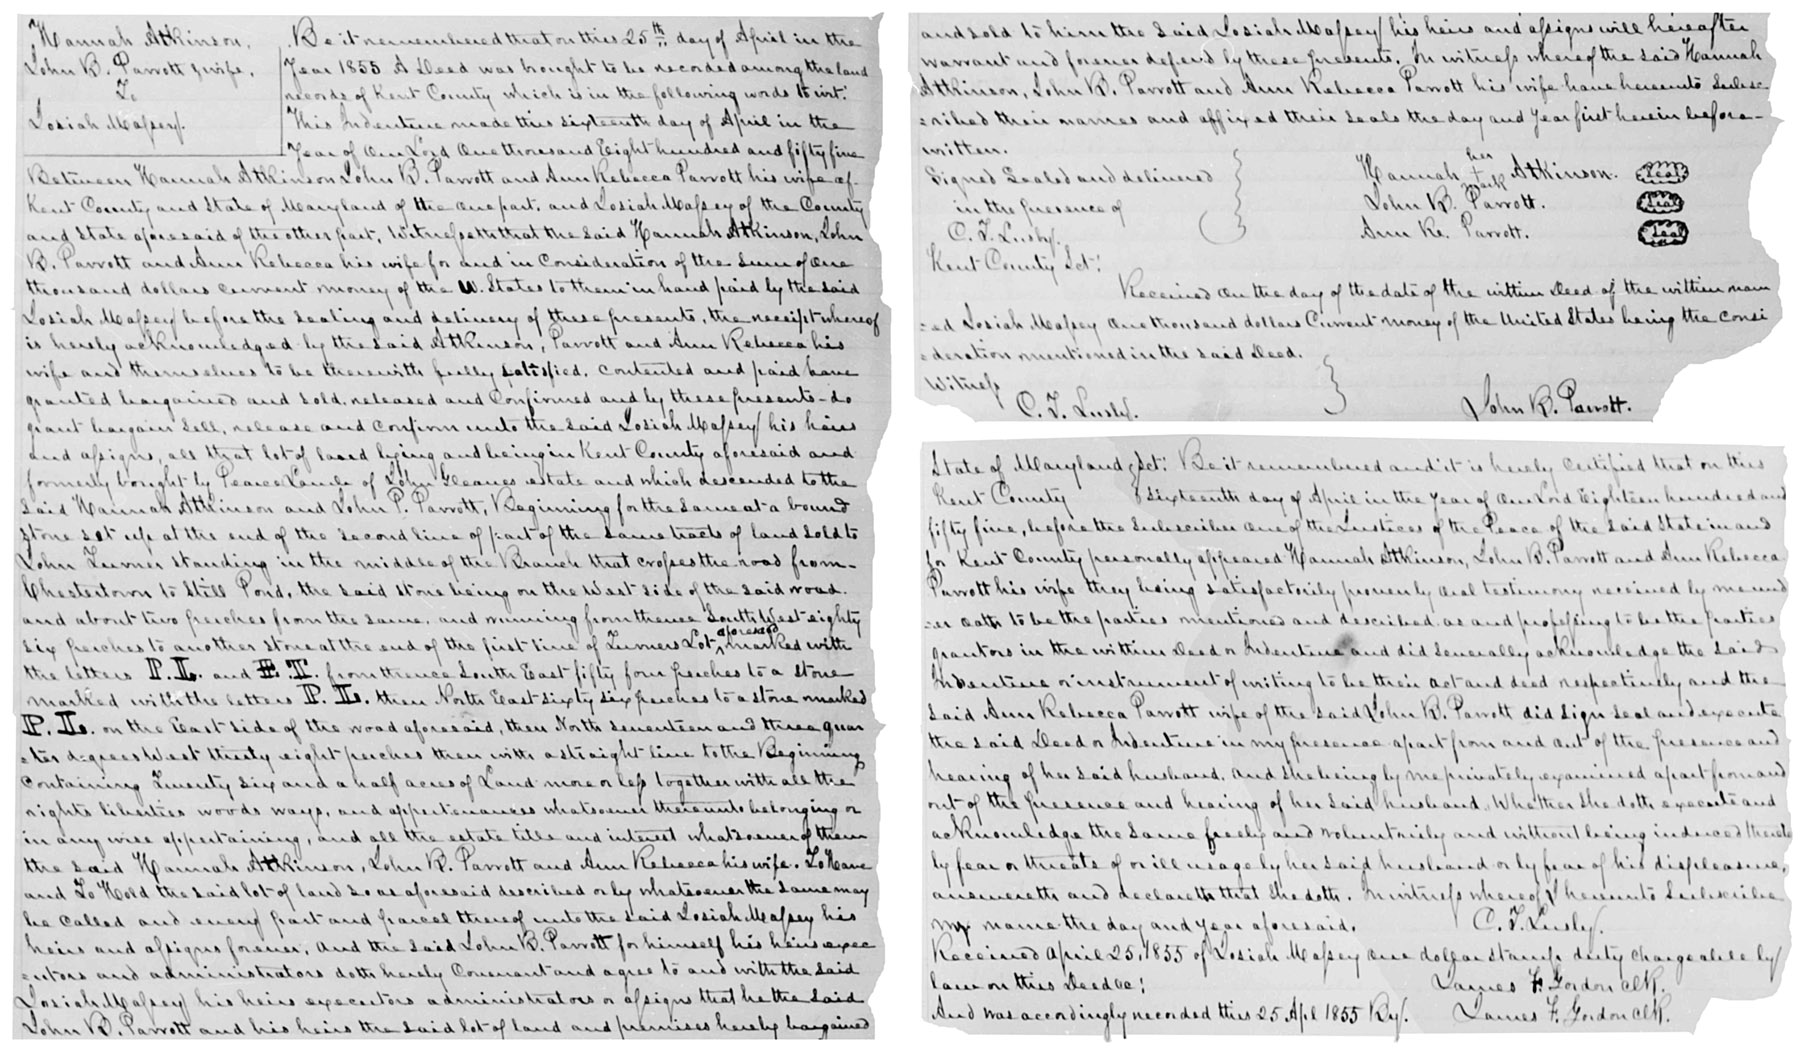 Hannah Atkinson,
John B. Parrott & wife,
To
Josiah Massey.
Be it remembered that on this 25th day of April in the
Year 1855 A Deed was brought to be recorded among the land
records of Kent County which is in the following words to wit:
This Indenture made this sixteenth day of April in the
Year of Our Lord One thousand Eight hundred and fifty five
Between Hannah Atkinson John B. Parrott and Ann Rebecca Parrott his wife of
Kent County and State of Maryland of the one part, and Josiah Massey of the County
and State aforesaid of the other part, Witnesseth that the said Hannah Atkinson, John
B. Parrott and Ann Rebecca his wife for and in Consideration of the sum of One
thousand dollars current money of the U. States to them in hand paid by the said
Josiah Massey before the sealing and delivery of these presents, the receipt whereof
is hereby acknowledged by the said Atkinson, Parrott and Ann Rebecca his
wife and themselves to be therewith fully satisfied, contented and paid have
granted bargained and sold, released and Confirmed and by these presents do
grant bargain sell, release and confirm unto the said Josiah Massey his heirs
and assigns, all that lot of land lying and being in Kent County aforesaid and
formerly bought by Pearce Lamb of John Gleaves estate and which descended to the
said Hannah Atkinson and John P. Parrott, Beginning for the same at a bound
stone set up at the end of the second line of part of the same tracts of land sold to
John Turner standing in the middle of the Branch that crosses the road from
Chestertown to Still Pond, the said stone being on the West side of the said road
and about two perches from the same, and running from thence South West eighty
six perches to another stone at the end of the first line of Turners Lot aforesaid marked with
the letters P. L. and E. T. from thence South East fifty four perches to a stone
marked with the letters P. L. then North East sixty six perches to a stone marked
P. L. on the East side of the road aforesaid, then North seventeen and three quar
=ter degrees West thirty eight perches then with a straight line to the Beginning
Containing Twenty six and a half acres of Land more or less together with all the
rights liberties woods ways, and appertenances whatsoever thereunto belonging or
in any wise appertaining, and all the estate title and interest whatsoever of them
the said Hannah Atkinson, John B. Parrott and Ann Rebecca his wife. To Have
and To Hold the said lot of land so as aforesaid described or by whatsoever the same may
be called and every part and parcel thereof unto the said Josiah Massey his
heirs and assigns forever, And the said John B. Parrott for himself his heirs exec
=utors and administrators doth hereby Covenant and agree to and with the said
Josiah Massey his heirs executors administrators or assigns that he the said
John B. Parrott and his heirs the said lot of land and premises hereby bargained
and sold to him the said Josiah Massey his heirs and assigns will hereafter
warrant and forever defend by these presents. In witness whereof the said Hannah
Atkinson, John B. Parrott and Ann Rebecca Parrott his wife have hereunto subsc
=ribed their names and affixed their seals the day and year first herein before-
written.
Signed Sealed and delivered
in the presence of
C. T. Lusby.
Hannah her + mark Atkinson. Seal
John B. Parrott. Seal
Ann Re. Parrott. Seal
Kent County Sct:
Received On the day of the date of the within Deed of the within nam
=ed Josiah Massey One thousand dollars Current money of the United States being the consi
=deration mentioned in the said Deed.
Witness
C. T. Lusby.
John B. Parrott.
State of Maryland Sct: Be it remembered and it is hereby certified that on this
Kent County sixteenth day of April in the Year of Our Lord Eighteen hundred and
fifty five, before the Subscriber One of the Justices of the Peace of the said State in and
for Kent County personally appeared Hannah Atkinson, John B. Parrott and Ann Rebecca
Parrott his wife they being satisfactorily proven by Oral testimony received by me und
=er oath to be the parties mentioned and described as and professing to be the parties
grantors in the within Deed or Indenture and did severally acknowledge the said
Indenture or instrument of writing to be their act and deed respectively and the
said Ann Rebecca Parrott wife of the said John B. Parrott did sign seal and execute
the said Deed or Indenture in my presence apart from and out of the presence and
hearing of her said husband, and she being by me privately examined apart from and
out of the presence and hearing of her said husband, Whether she doth execute and
acknowledge the same freely and voluntarily and without being induced thereto
by fear or threats of or ill usage by her said husband or by fear of his displeasure,
answereth and declareth that she doth. In witness whereof I hereunto Subscribe
my name the day and year aforesaid.
C. T. Lusby.
Received April 25, 1855 of Josiah Massey One dollar stamp duty chargeable by
law on this Deed &c:
James F. Gordon Clk.
And was accordingly recorded this 25 Apl 1855 By.
James F. Gordon Clk.